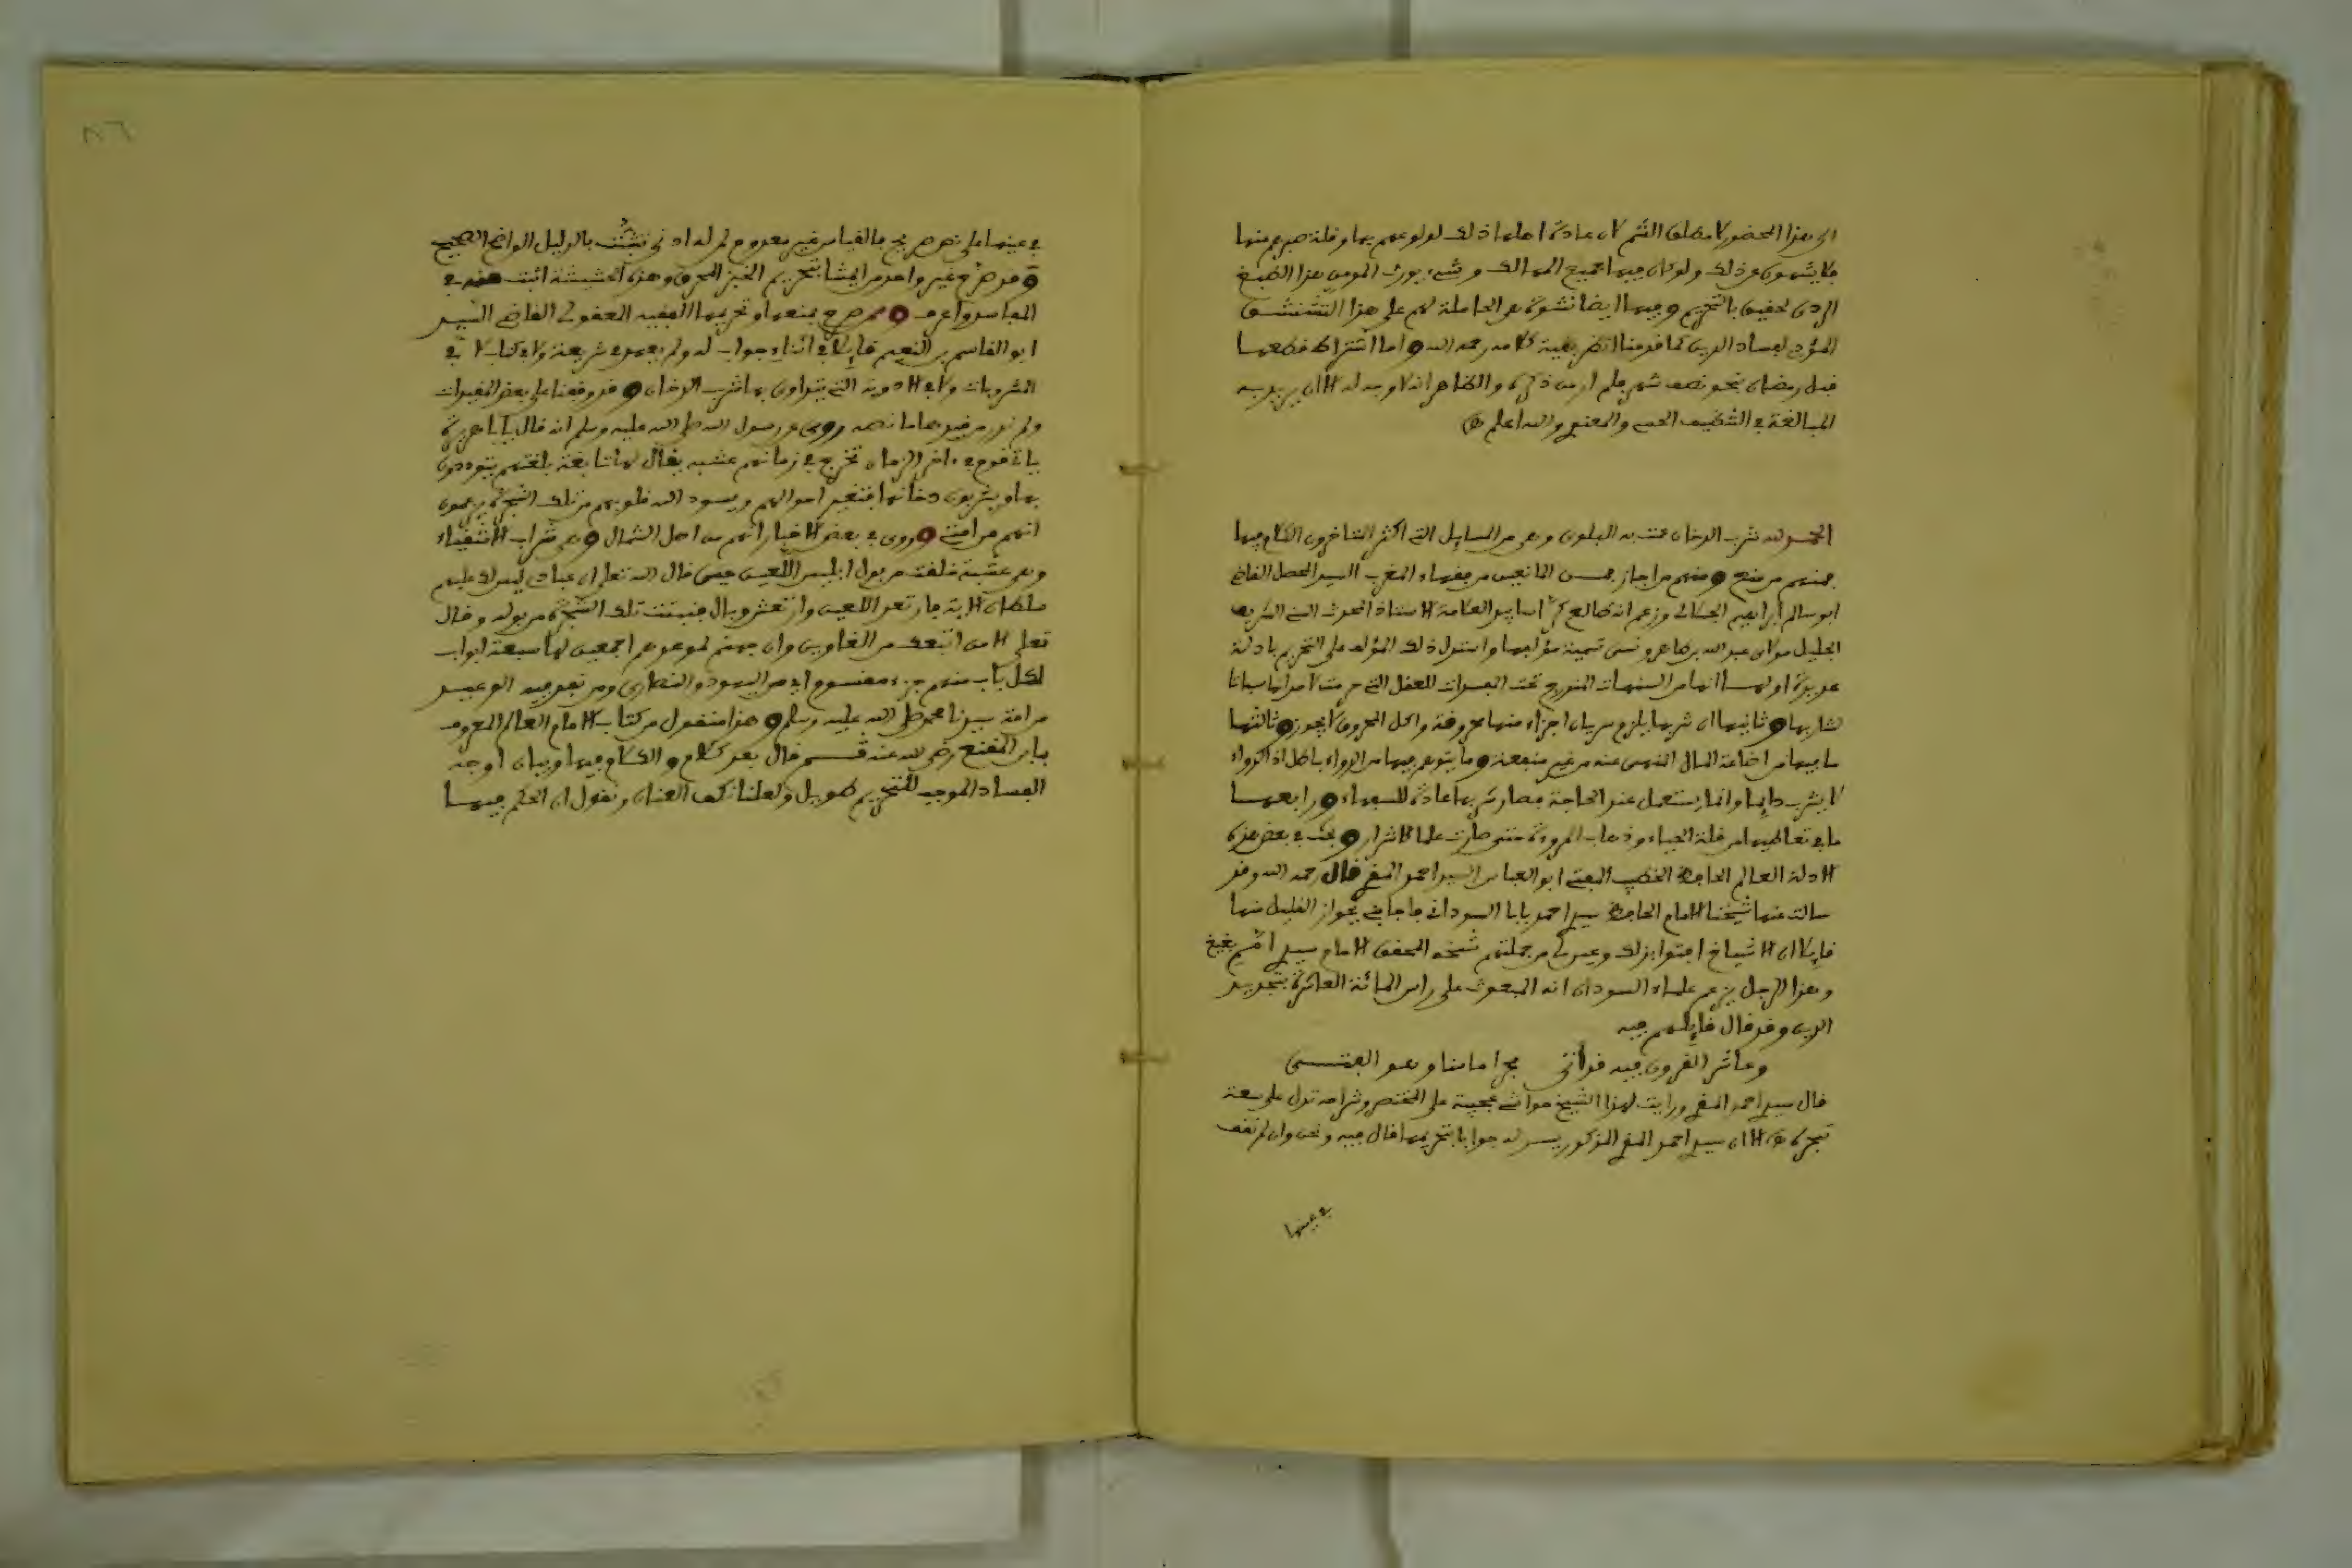 الى هذا الحضور لا مطلق الشم لان عادة اهلها ذلك لولوعهم بها وقلة صبرهم عنها
فلا يشمون غير ذلك ولو كان فيها جميع المهالك وشيء يورث المومن هذا الطبع
الردي لحقيق بالتحريم وفيها ايضا نشوة هي الحاملة لهم على هذا التشنشن
المؤدي لفساد الدين كما قدمنا انظر بقية كلامه رحمه الله واما اشتراط قطعها
قبل رمضان بنحو نصف شهر فلم ار من ذكره والظاهر انه لا وجه له الا ان يريد به
المبالغة في التنظيف الحسي والمعنوي والله اعلم
الحمد لله شرب الدخان عمت به البلوى وهي من المسايل التي اكثر المتاخرون الكلام فيها
فمنهم من منع ومنهم من اجاز فمن المانعين من فقهاء المغرب السيد المحصل القاضي
ابو سالم ابراهيم الجلالي وزعم انه طالع كراسا فيه العلامة الاستاذ المحدث السني الشريف
الجليل مولاي عبد الله بن طاهر ونسي تسمية مؤلفها واستدل ذلك المؤلف على التحريم بادلة
عديدة اولها انها من السفهات المندرج تحت المفسدات للعقل التي حرمت لامرانها سباتا
لشاربها وثانيها ان شربها يلزم سريان اجزاء منها محروقة واكل المحروق لا يجوز وثالثها
ما فيها من اضاعة المال المنهي عنه من غير منفعة وما يتوهم فيها من الدواء باطل اذ الدواء
لا يشرب دايما وانما يستعمل عند الحاجة فصار شربها عادة للسفهاء ورابعها
ما في تعاطيها من قلة الحياء وذهاب المروءة حتى صارت علما للاشرار وبحث في بعض هذه
الادلة العالم الحافظ الخطيب المفتي ابو العباس السيد احمد المقري قال رحمه الله وقد
سالت عنها شيخنا الامام الحافظ سيدي احمد بابا السوداني فاجابني بجواز القليل منها
قايلا ان الاشياخ افتوا بذلك وعين لي من جملتهم شيخه المحقق الامام سيدي محمد بغيغ
وهذا الرجل يزعم علماء السودان انه المبعوث على راس المائة العاشرة بتجديد
الدين وقد قال قايلهم فيه
وعاشر القرون فيه قد اتى محمد امامنا وهو الفتى
قال سيدي احمد المقري ورايت لهذا الشيخ حواشي عجيبة على المختصر وشراحه تدل على سعة
تبحره الا ان سيدي احمد المقري المذكور يسر له جوابا بتحريمها قال فيه ونحن وان لم نقف
في عينها
في عينها على نص صريح فالقياس غير معدوم لمن له ادنى تشبث بالدليل الواضح الصحيح
وقد صرح غير واحد من ايمتنا بتحريم الخبز المحرق وهذه الحشيشة اثبت منه في
المفاسد واعرف وممن صرح بمنعها وتحريمها الفقيه العقولي القاضي السيد
ابو القاسم بن النعيم قايلا في اثناء جواب له ولم يعهد في شريعة ولا في كتاب لا في
المشروبات ولا في الادوية التي يتداوى بها شرب الدخان وقد وقفنا على بعض التقييدات
ولم ندر مقيدها ما نصه روي عن رسول الله صلى الله عليه وسلم انه قال يا ابا هريرة
ياتي قوم في ءاخر الزمان تخرج في زمانهم عشبة يقال لها تابغة بلغتهم يتوددون
بها ويشربون دخانها فتتغير احوالهم ويسود الله قلوبهم من تلك الشجرة يزعمون
انهم من امتي وروي في بعض الاخبار انهم من اهل الشمال وهي شراب الاشقياء
وهي عشبة خلقت من بول ابليس اللعين حين قال الله تعلى ان عبادي ليس لك عليهم
سلطان الاية فارتعد اللعين وارتعش وبال فنبتت تلك الشجرة من بوله وقال
تعلى الا من اتبعك من الغاوين وان جهنم لموعدهم اجمعين لها سبعة ابواب
لكل باب منهم جزء مقسوم اي من اليهود والنصارى ومن نفذ فيه الوعيد
من امة سيدنا محمد صلى الله عليه وسلم وهذا منقول من كتاب الامام العالم المعروف
بابن المقنع رضي الله عنه ثم قال بعد كلام والكلام فيها وبيان اوجه
الفساد الموجب للتحريم طويل ولعلنا نكف العنان ونقول ان الحكم فيها